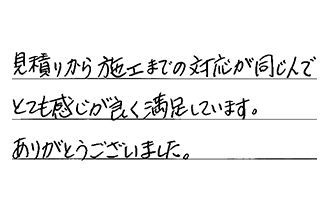 見積りから施工までの対応が同じ人で
とても感じが良く満足しています。
ありがとうございました。